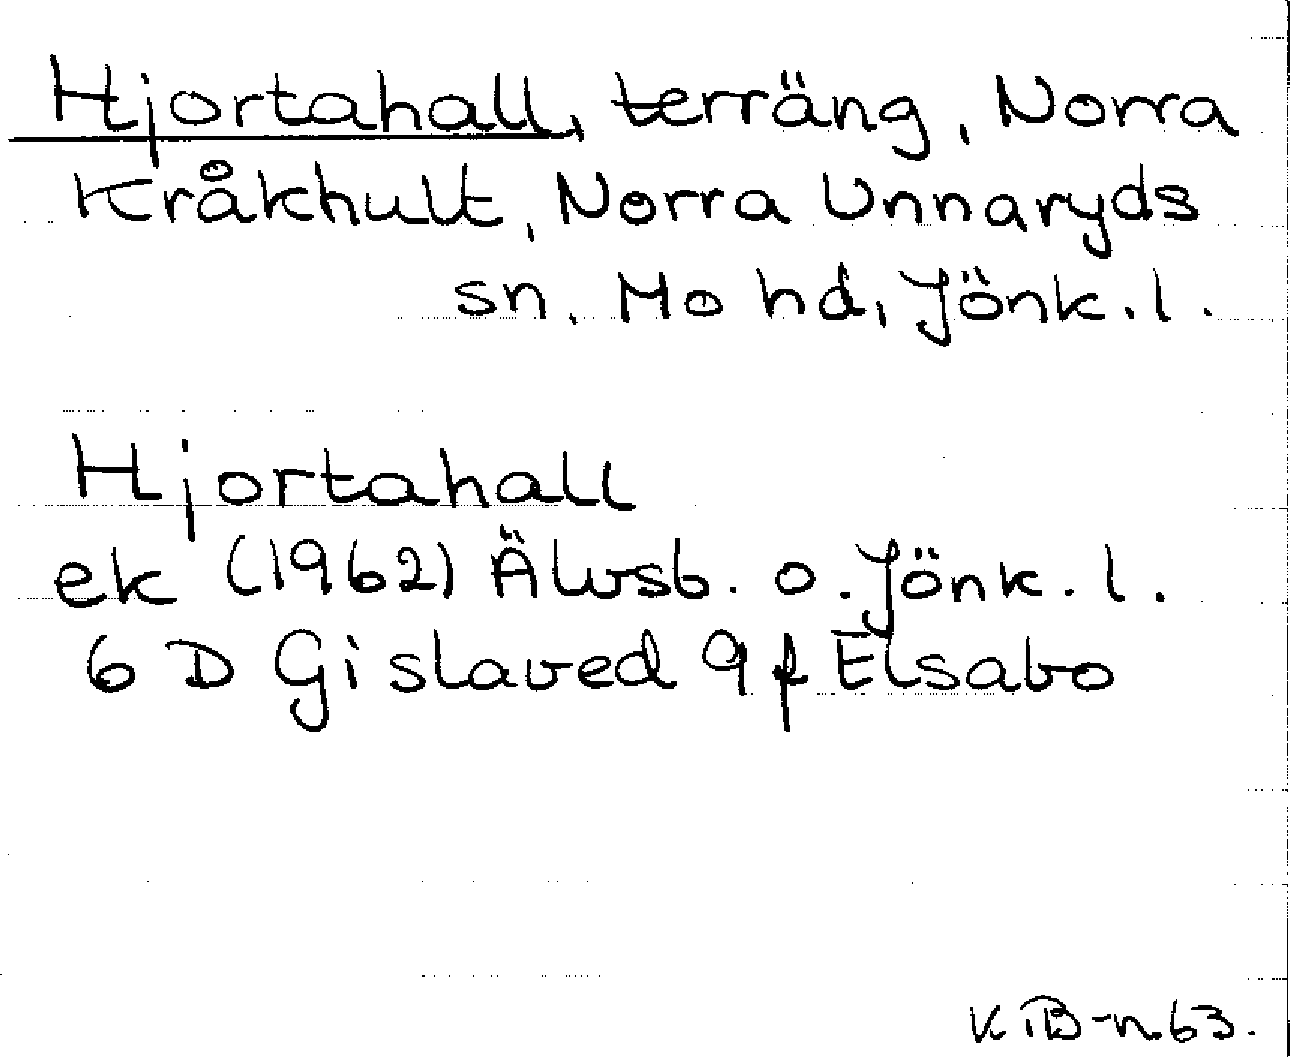 Hjortahall, terräng, Norra
Kråkhult, Norra Unnaryds
sn, Mo hd, Jönk. l.
Hjortahall
ek (1962) Älvsb. o. Jönk. l.
6 D Gislaved 9 f Elsabo
K IB-n. 63.